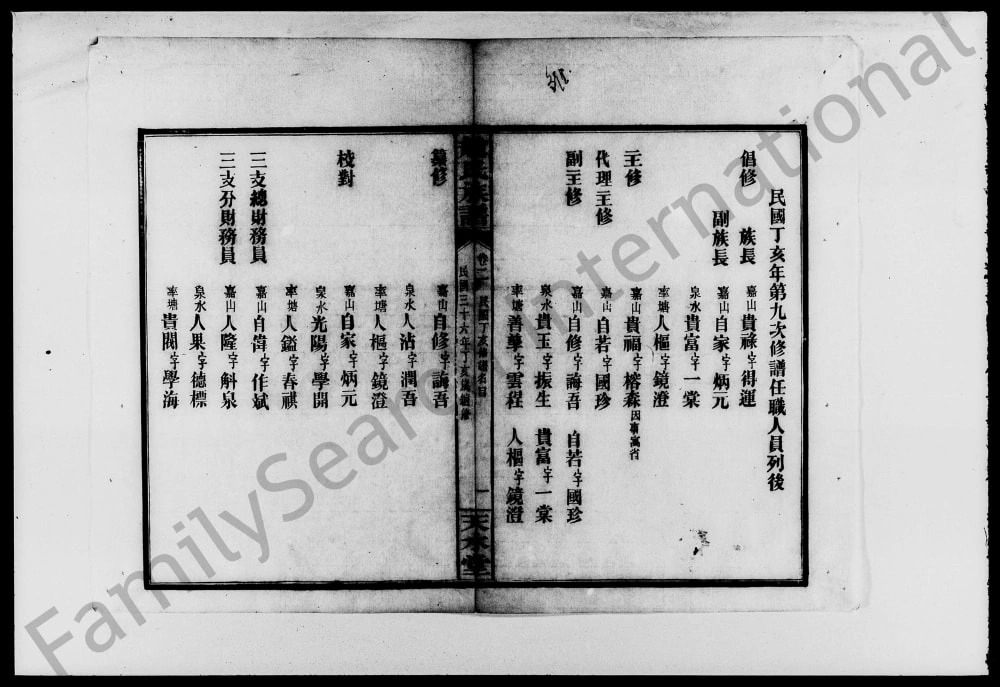 民國丁亥年第九次修譜任職人員列後
倡修 族長 嘉山貴祿字得運
副族長 嘉山自家字炳元
泉水貴富字一棠
率塘人樞字鏡澄
主修 嘉山貴福字榕森因事寓省
代理主修 嘉山自若字國珍
副主修 嘉山自修字誨吾 自若字國珍
泉水貴玉字振生 貴富字一棠
率塘善華字雲程 人樞字鏡澄
氏族譜
卷二 民國丁亥修譜名目 一
民國三十六年丁亥歲續修
天水堂
修 嘉山自修字誨吾
泉水人沾字潤吾
率塘人樞字鏡澄
校對 嘉山自家字炳元
泉水光陽字學開
率塘人鎰字春祺
三支總財務員 嘉山自嵵字作斌
三支分財務員 嘉山人隆字斛泉
泉水人果字德標
率塘貴閥字學海
FamilySearch International